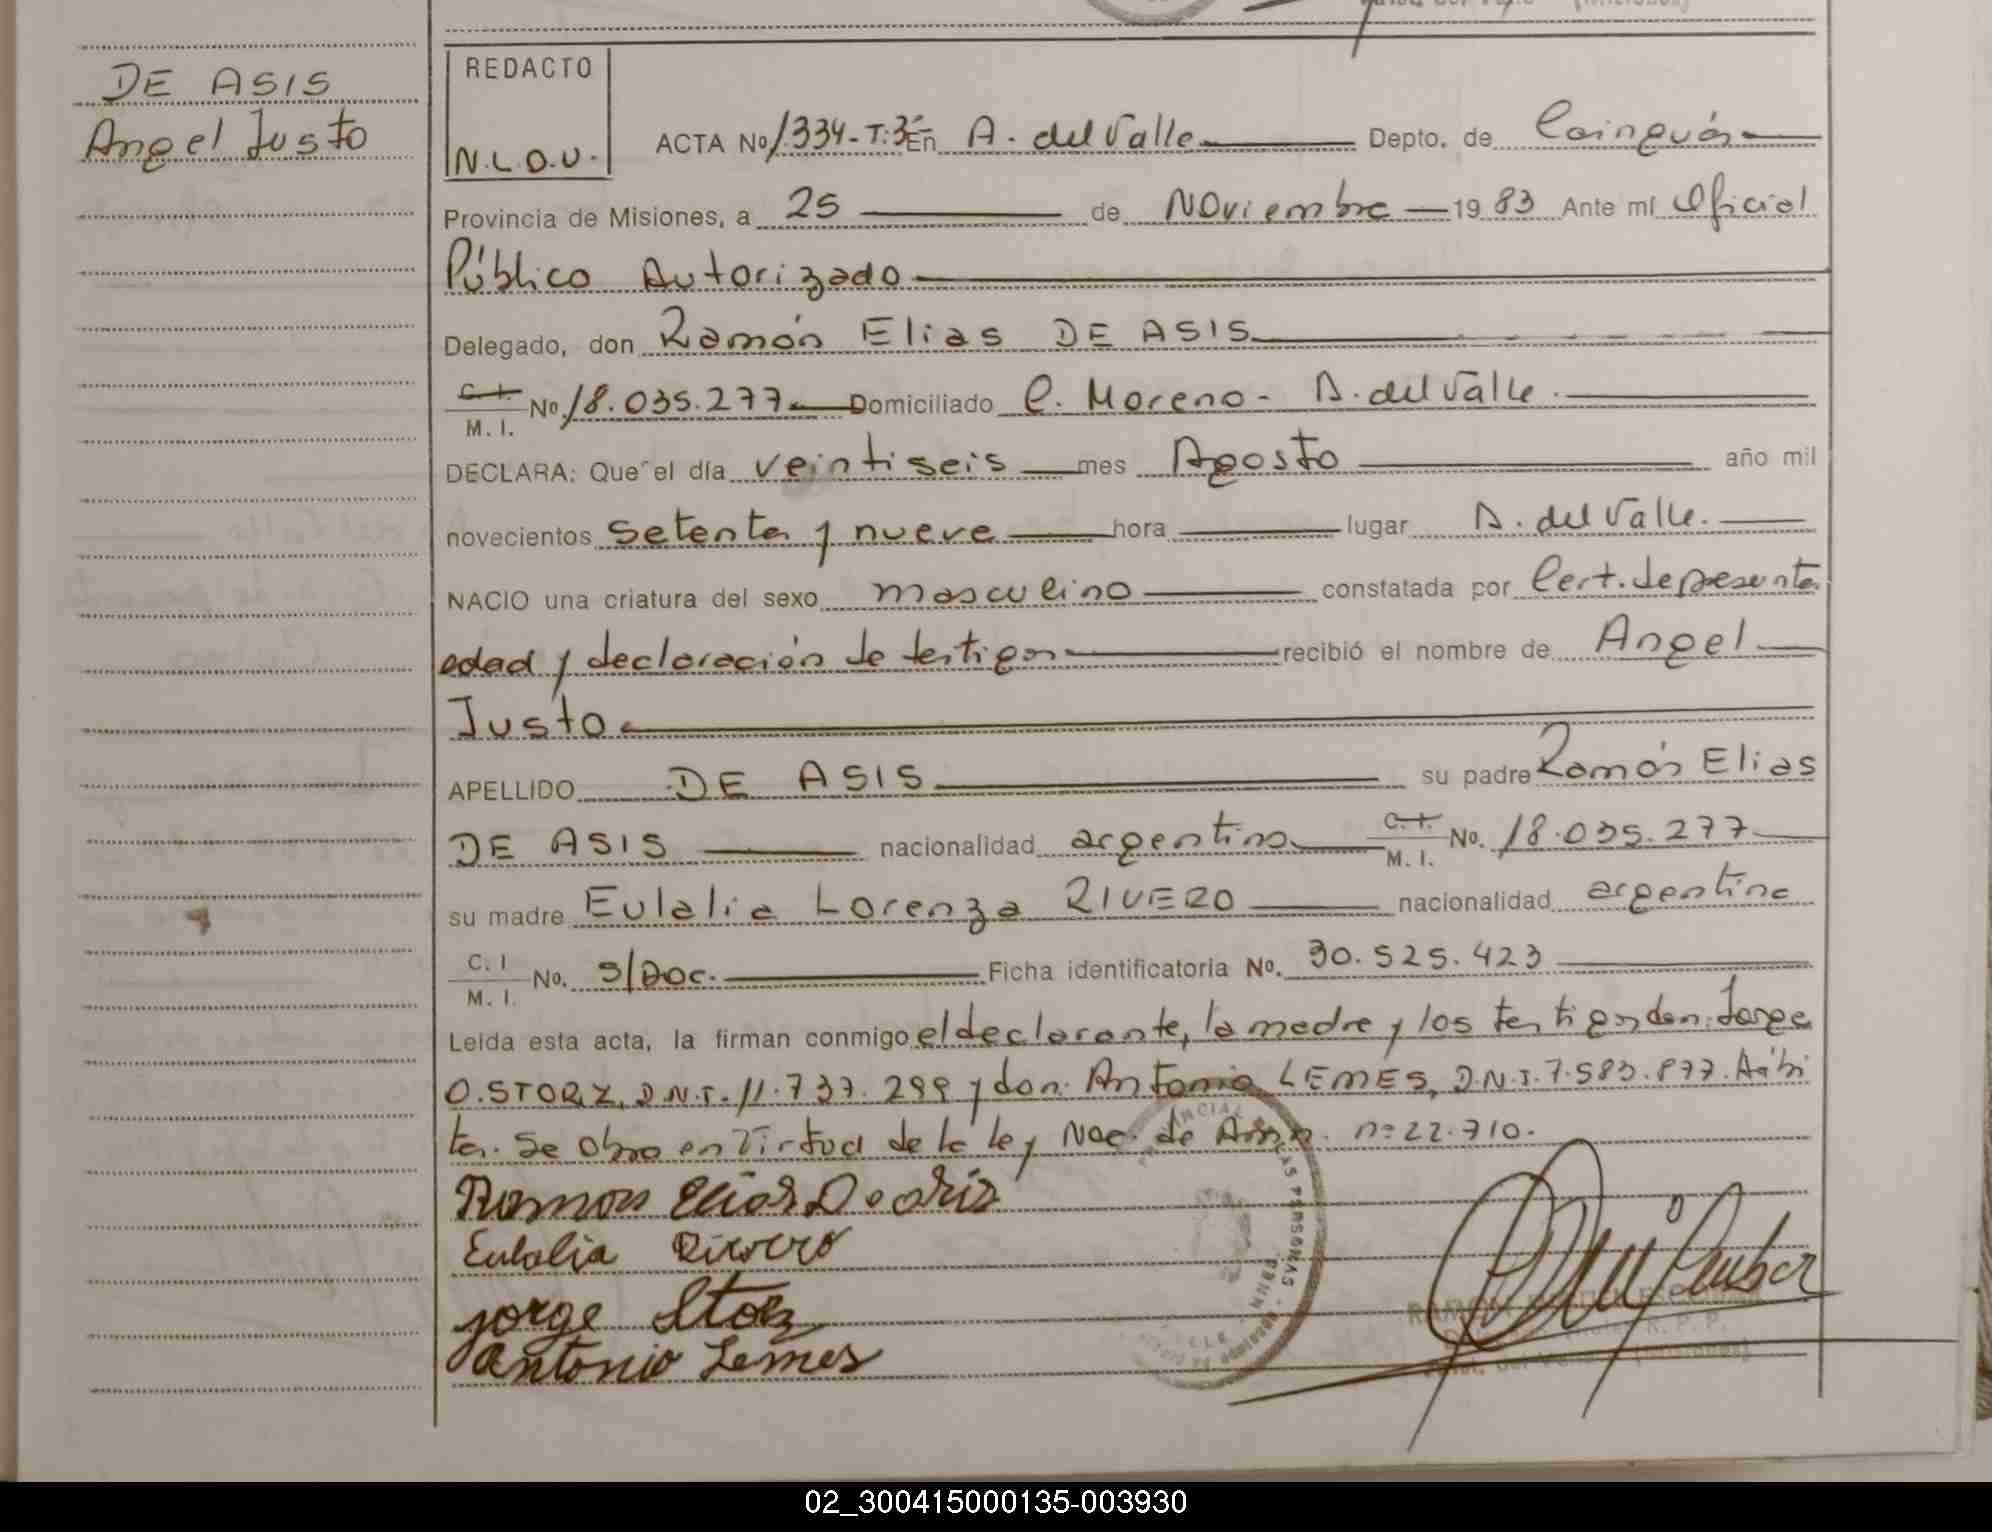 DE ASIS
Angel Justo
REDACTO
N.L.O.U.
ACTA No/334-T:3º En A. del Valle Depto. de Cainguás
Provincia de Misiones, a 25 de Noviembre 1983 Ante mí Oficial
Público Autorizado
Delegado, don Ramón Elias DE ASIS
C.I. M. I. No./8.035.277 Domiciliado C. Moreno - A. del Valle.
DECLARA: Que el día veintiseis mes Agosto año mil
novecientos setenta y nueve hora lugar A. del Valle.
NACIO una criatura del sexo masculino constatada por Cert. de presunta
edad y declaración de testigos recibió el nombre de Angel
Justo
APELLIDO DE ASIS su padre Ramón Elias
DE ASIS nacionalidad argentino C.I. M. I. No. /8.035.277
su madre Eulalia Lorenza RIVERO nacionalidad argentina
C. I M. I. No. S/Doc. Ficha identificatoria No. 30.525.423
Leída esta acta, la firman conmigo el declarante, la madre y los testigos don: Jorge
O. STORZ, D.N.I. 11.737.299 y don: Antonio LEMES, D.N.I. 7.583.877. Hábi
les. Se obro en Virtud de la ley Nac. de Amn. nº 22.710.
Ramon Elias De asis
Eulalia Rivero
Jorge Storz
Antonio Lemes
LAS PERSONAS
02_300415000135-003930